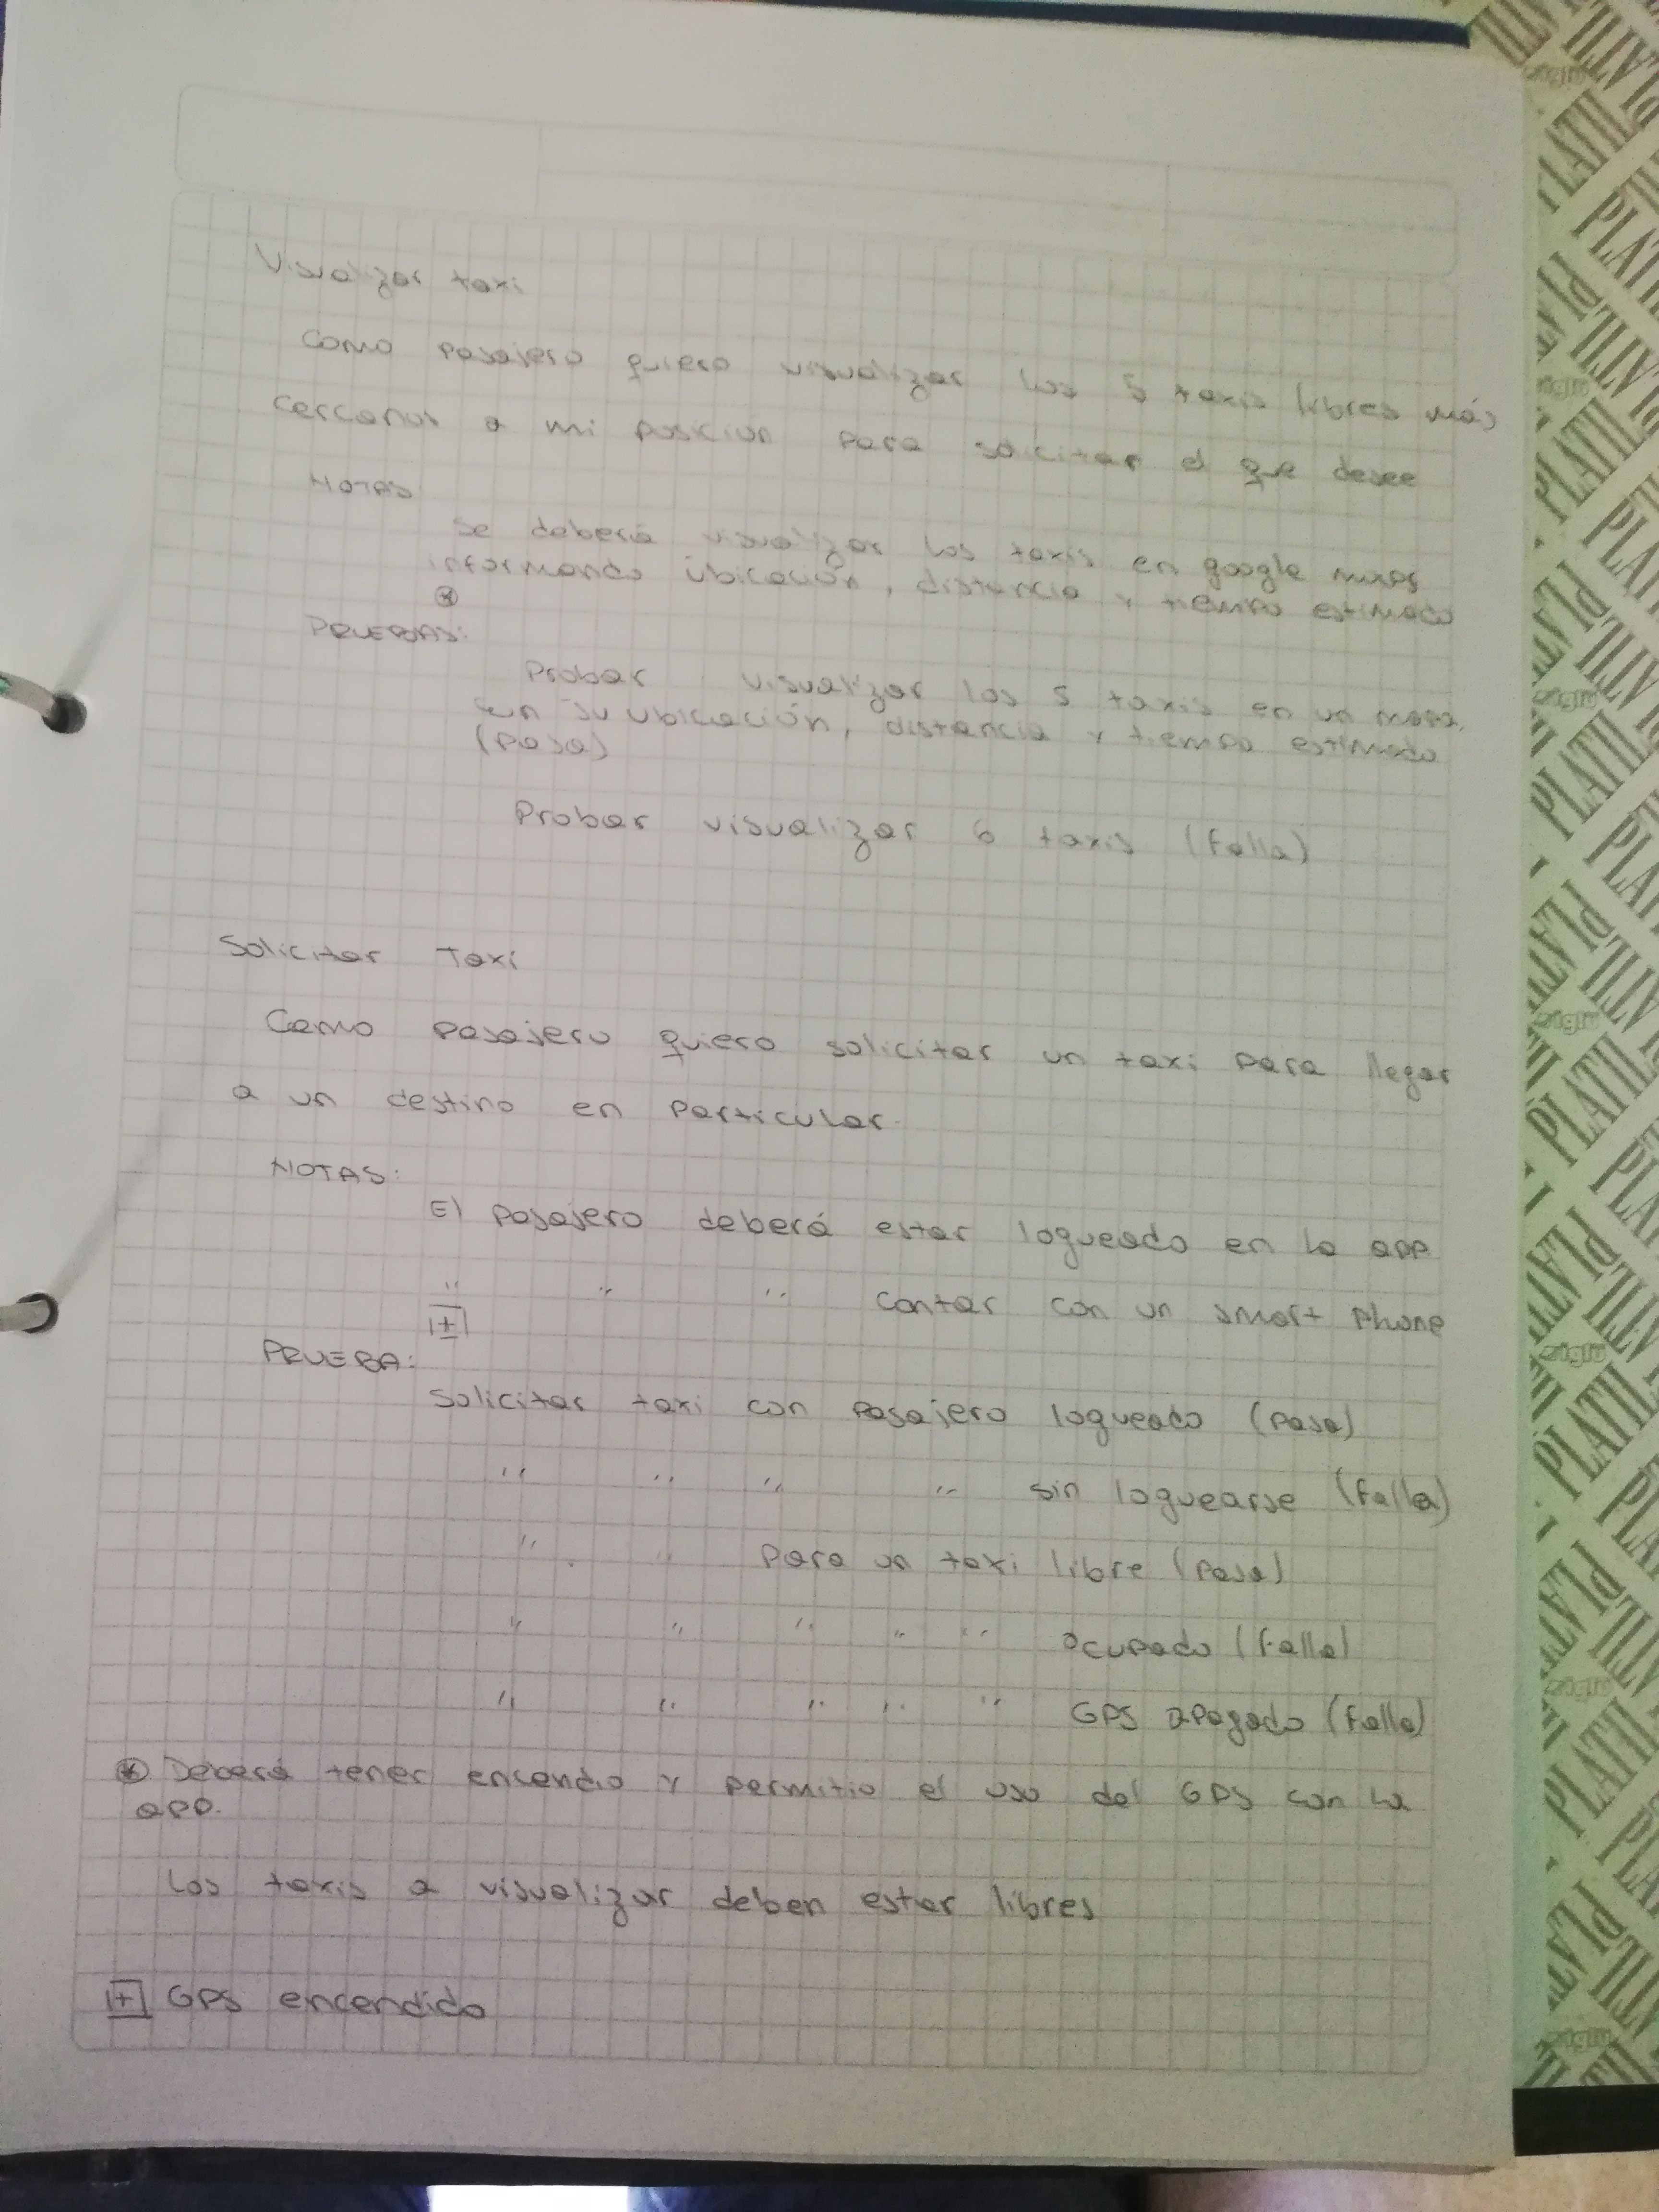 Visualizar taxi
Como pasajero quiero visualizar los 5 taxis libres más
cercanos a mi posición para solicitar el que desee
NOTAS
Se deberá visualizar los taxis en google maps
informando ubicación, distancia y tiempo estimado
*
PRUEBAS:
Probar visualizar los 5 taxis en un mapa,
con su ubicación, distancia y tiempo estimado
(pasa)
Probar visualizar 6 taxis (falla)
Solicitar Taxi
Como pasajero quiero solicitar un taxi para llegar
a un destino en particular.
NOTAS:
El pasajero deberá estar logueado en la app
" " " contar con un smart phone
+
PRUEBA:
Solicitar taxi con pasajero logueado (pasa)
" " " " sin loguearse (falla)
" " para un taxi libre (pasa)
" " " " " ocupado (falla)
" " " " " GPS apagado (falla)
* Deberá tener encendio y permitio el uso del GPS con la
app.
Los taxis a visualizar deben estar libres
+ GPS encendido
PLATIL